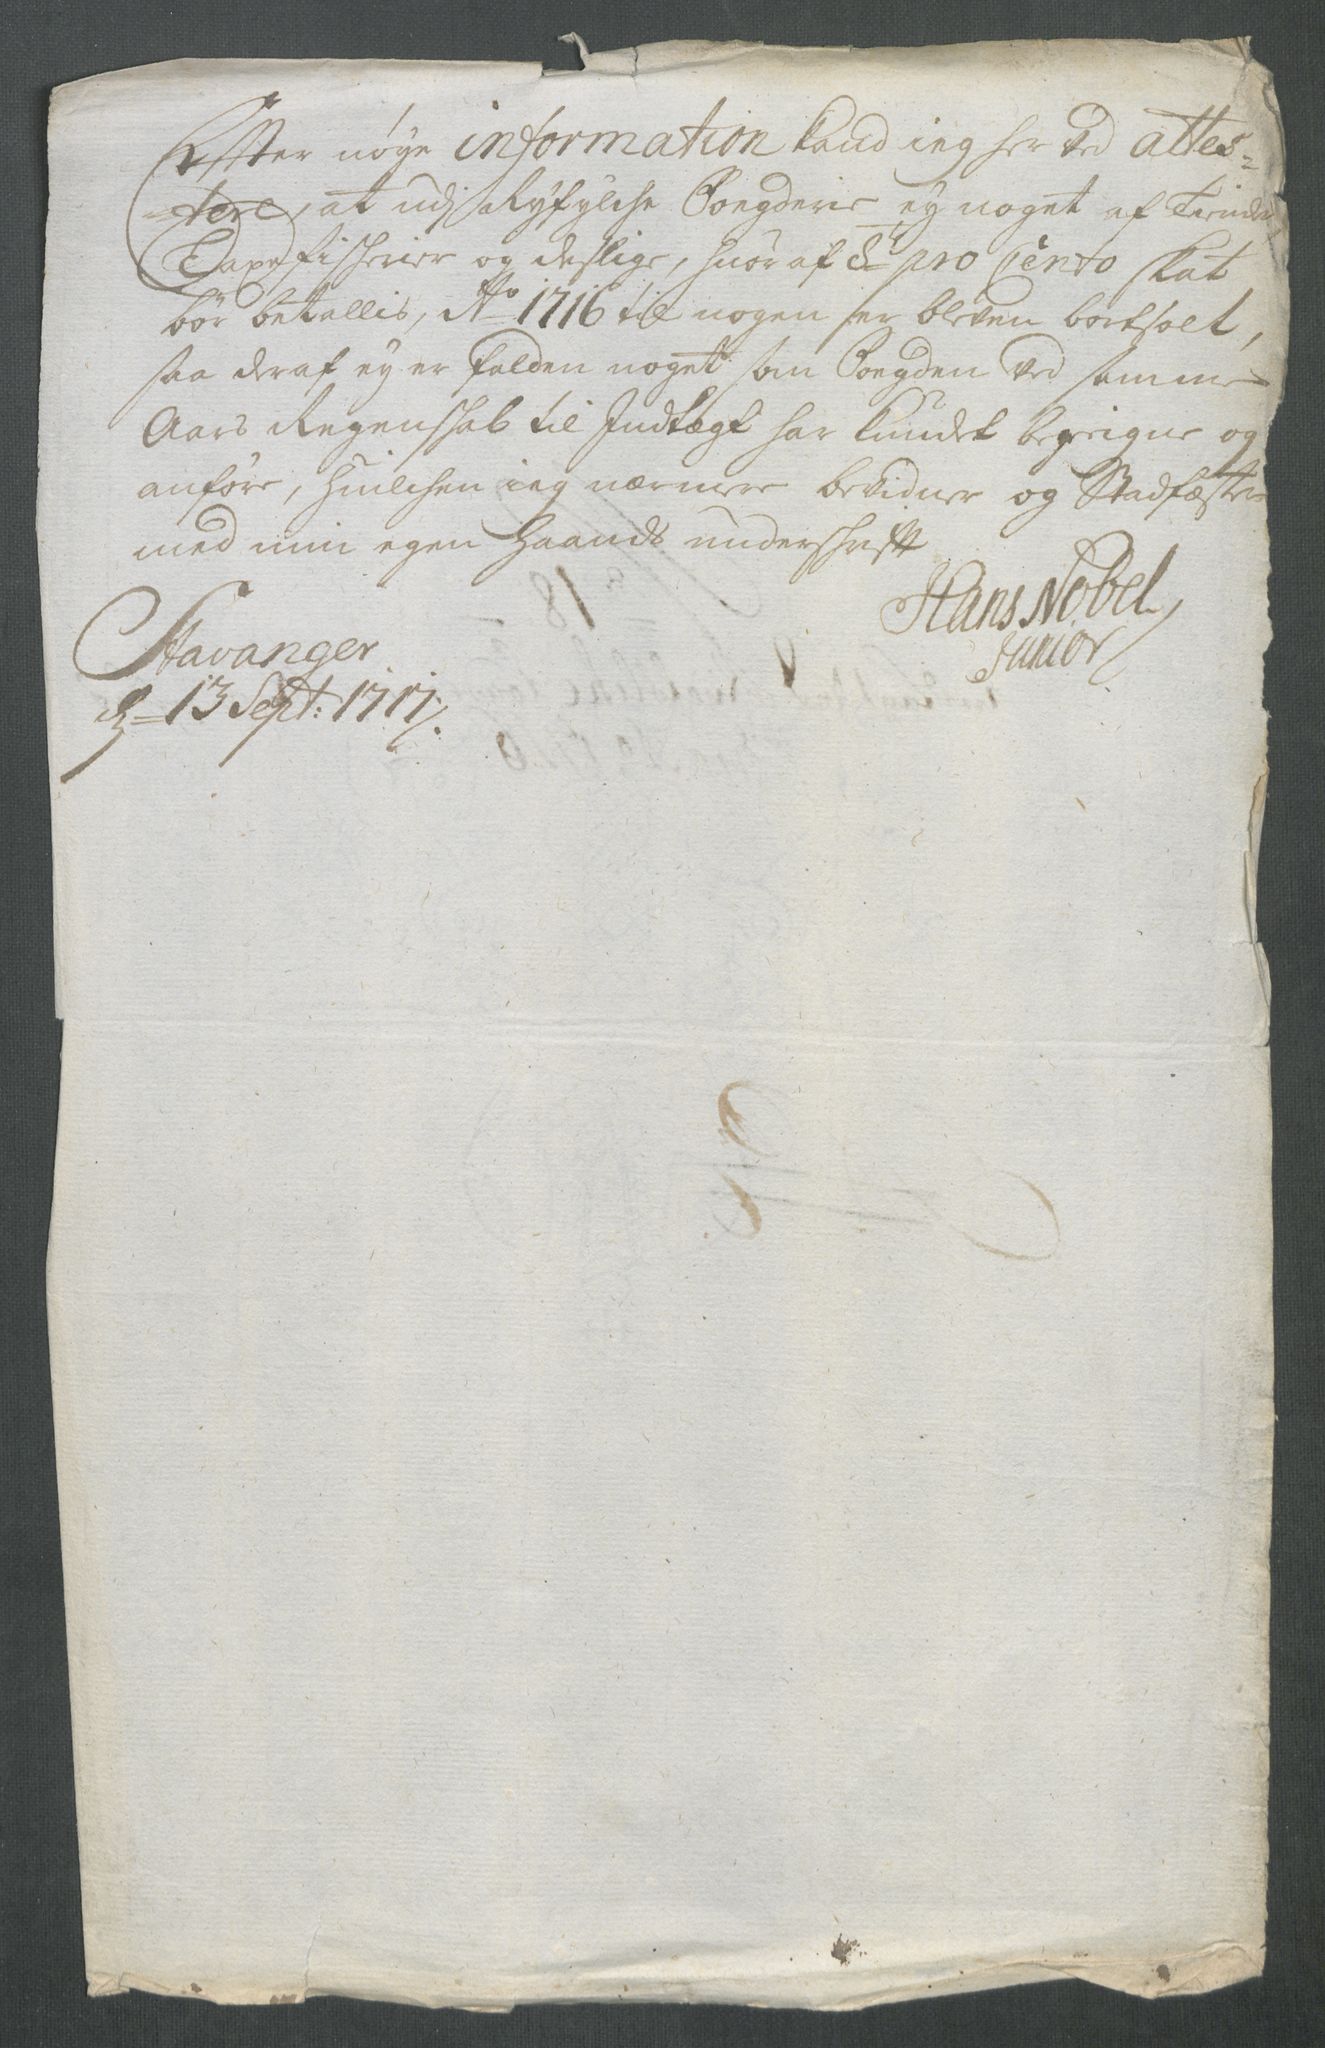 Effter nøye information kand ieg her ved attes=
=tere, at udj Ryfylche Fogderie ey noget af Tiender
Laxefischerier og deslige, huor af pro Cento skat
bør betallis, Ao 1716 til nogen er bleven bortsolt,
saa deraf ey er falden noget som Fogden ved samme
Aars Regenschab til Indtægt har kundet beregne og
anføre, huilchen ieg nærmere bevidner og Stadfæster
med min egen Haands underschrifft
Hans Nobel
Junior
Stavanger
d 13 Sept: 1717.